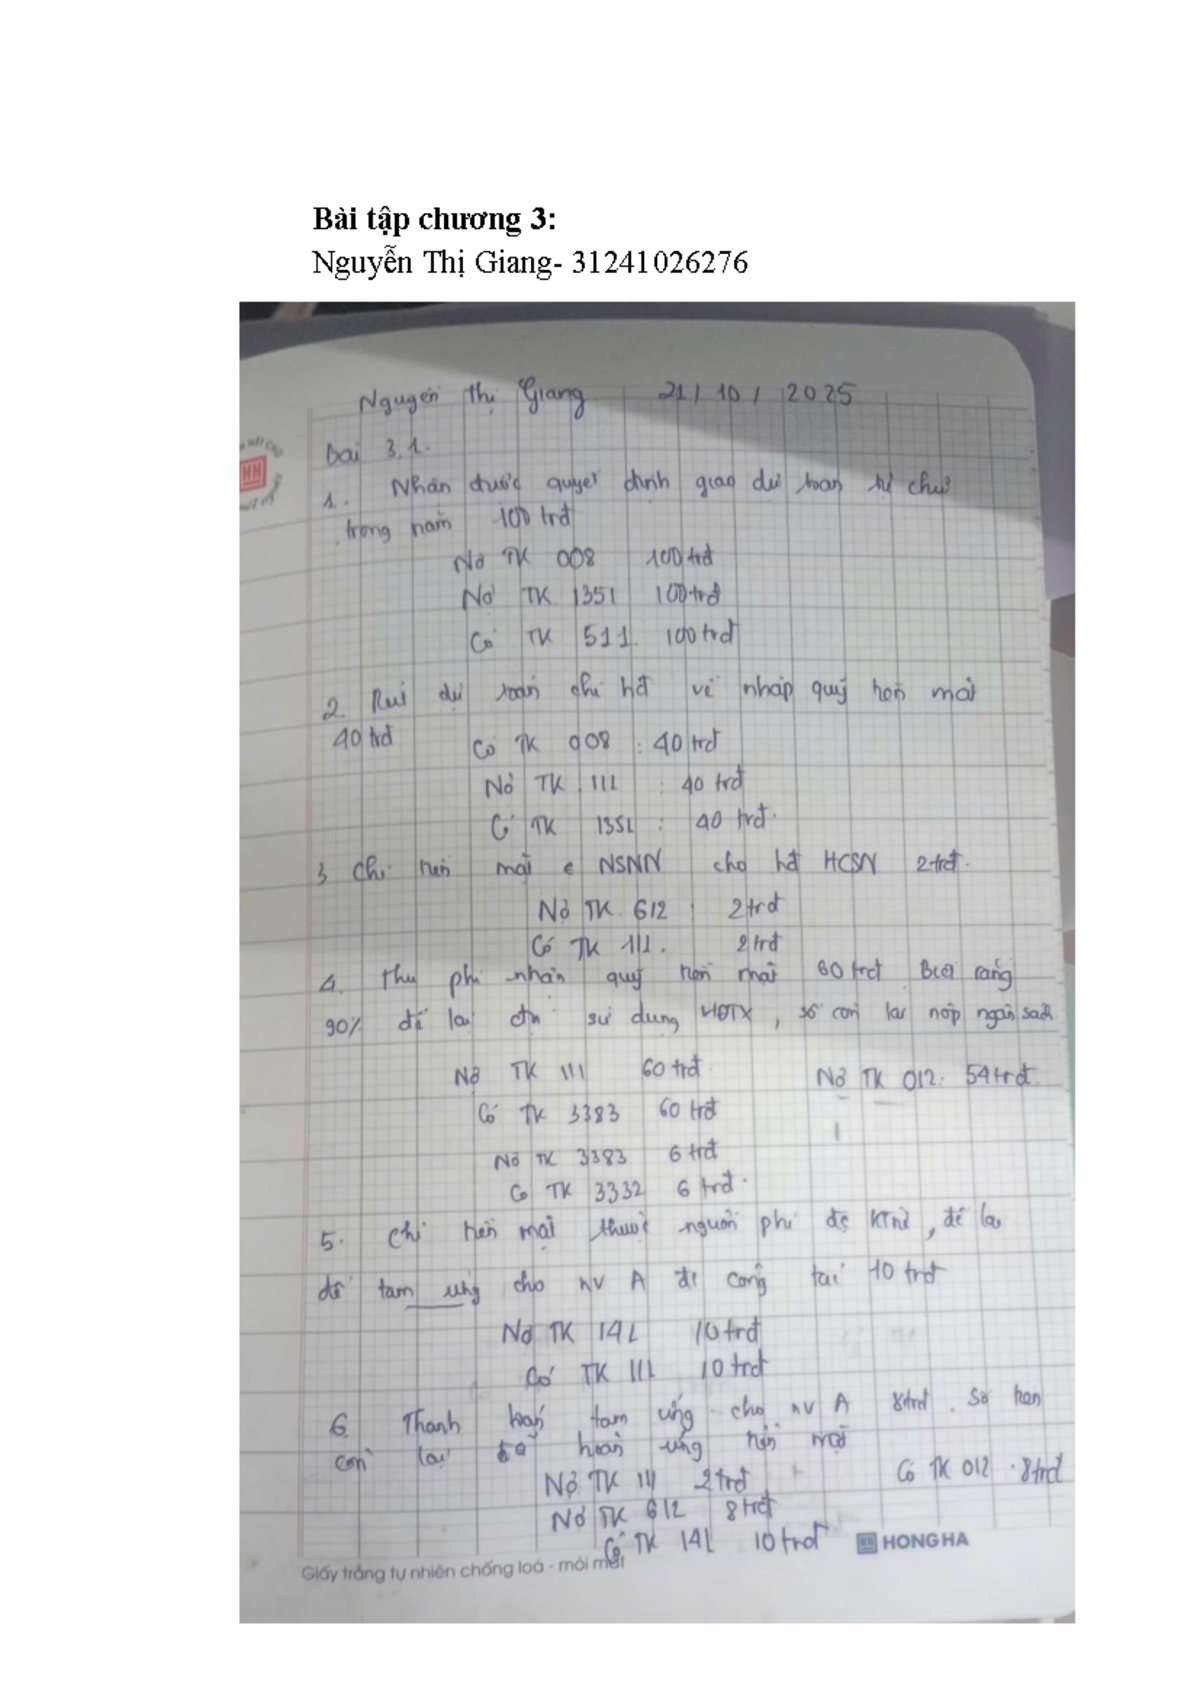 Bài tập chương 3:
Nguyễn Thị Giang- 31241026276
Nguyễn Thị Giang 21/10/2025
Bài 3.1.
1. Nhận được quyết định giao dự toán tự chủ
trong năm 100 trđ
Nợ TK 008 100 trđ
Nợ TK 1351 100 trđ
Có TK 511 100 trđ
2. Rút dự toán chi hđ về nhập quỹ tiền mặt
40 trđ Có TK 008 : 40 trđ
Nợ TK 111 : 40 trđ
Có TK 1351 : 40 trđ.
3 Chi tiền mặt NSNN cho hđ HCSN 2 trđ.
Nợ TK 612 : 2 trđ
Có TK 111. 2 trđ
4. Thu phí nhận quỹ tiền mặt 60 trđ. Biết rằng
90% để lại đv sử dụng HĐTX, số còn lại nộp ngân sách
Nợ TK 111 60 trđ Nợ TK 012. 54 trđ
Có TK 3383 60 trđ
Nợ TK 3383 6 trđ
Có TK 3332 6 trđ.
5. Chi tiền mặt thuộc nguồn phí đc KTrừ, để lại
để tạm ứng cho NV A đi công tác 10 trđ
Nợ TK 141 10 trđ
Có TK 111 10 trđ
6. Thanh toán tạm ứng cho NV A 8 trđ. Số tiền
còn lại đã hoàn ứng tiền mặt
Nợ TK 111 2 trđ Có TK 012 . 8 trđ
Nợ TK 612 8 trđ
Có TK 141 10 trđ
HONG HA
Giấy trắng tự nhiên chống loá - mỏi mắt